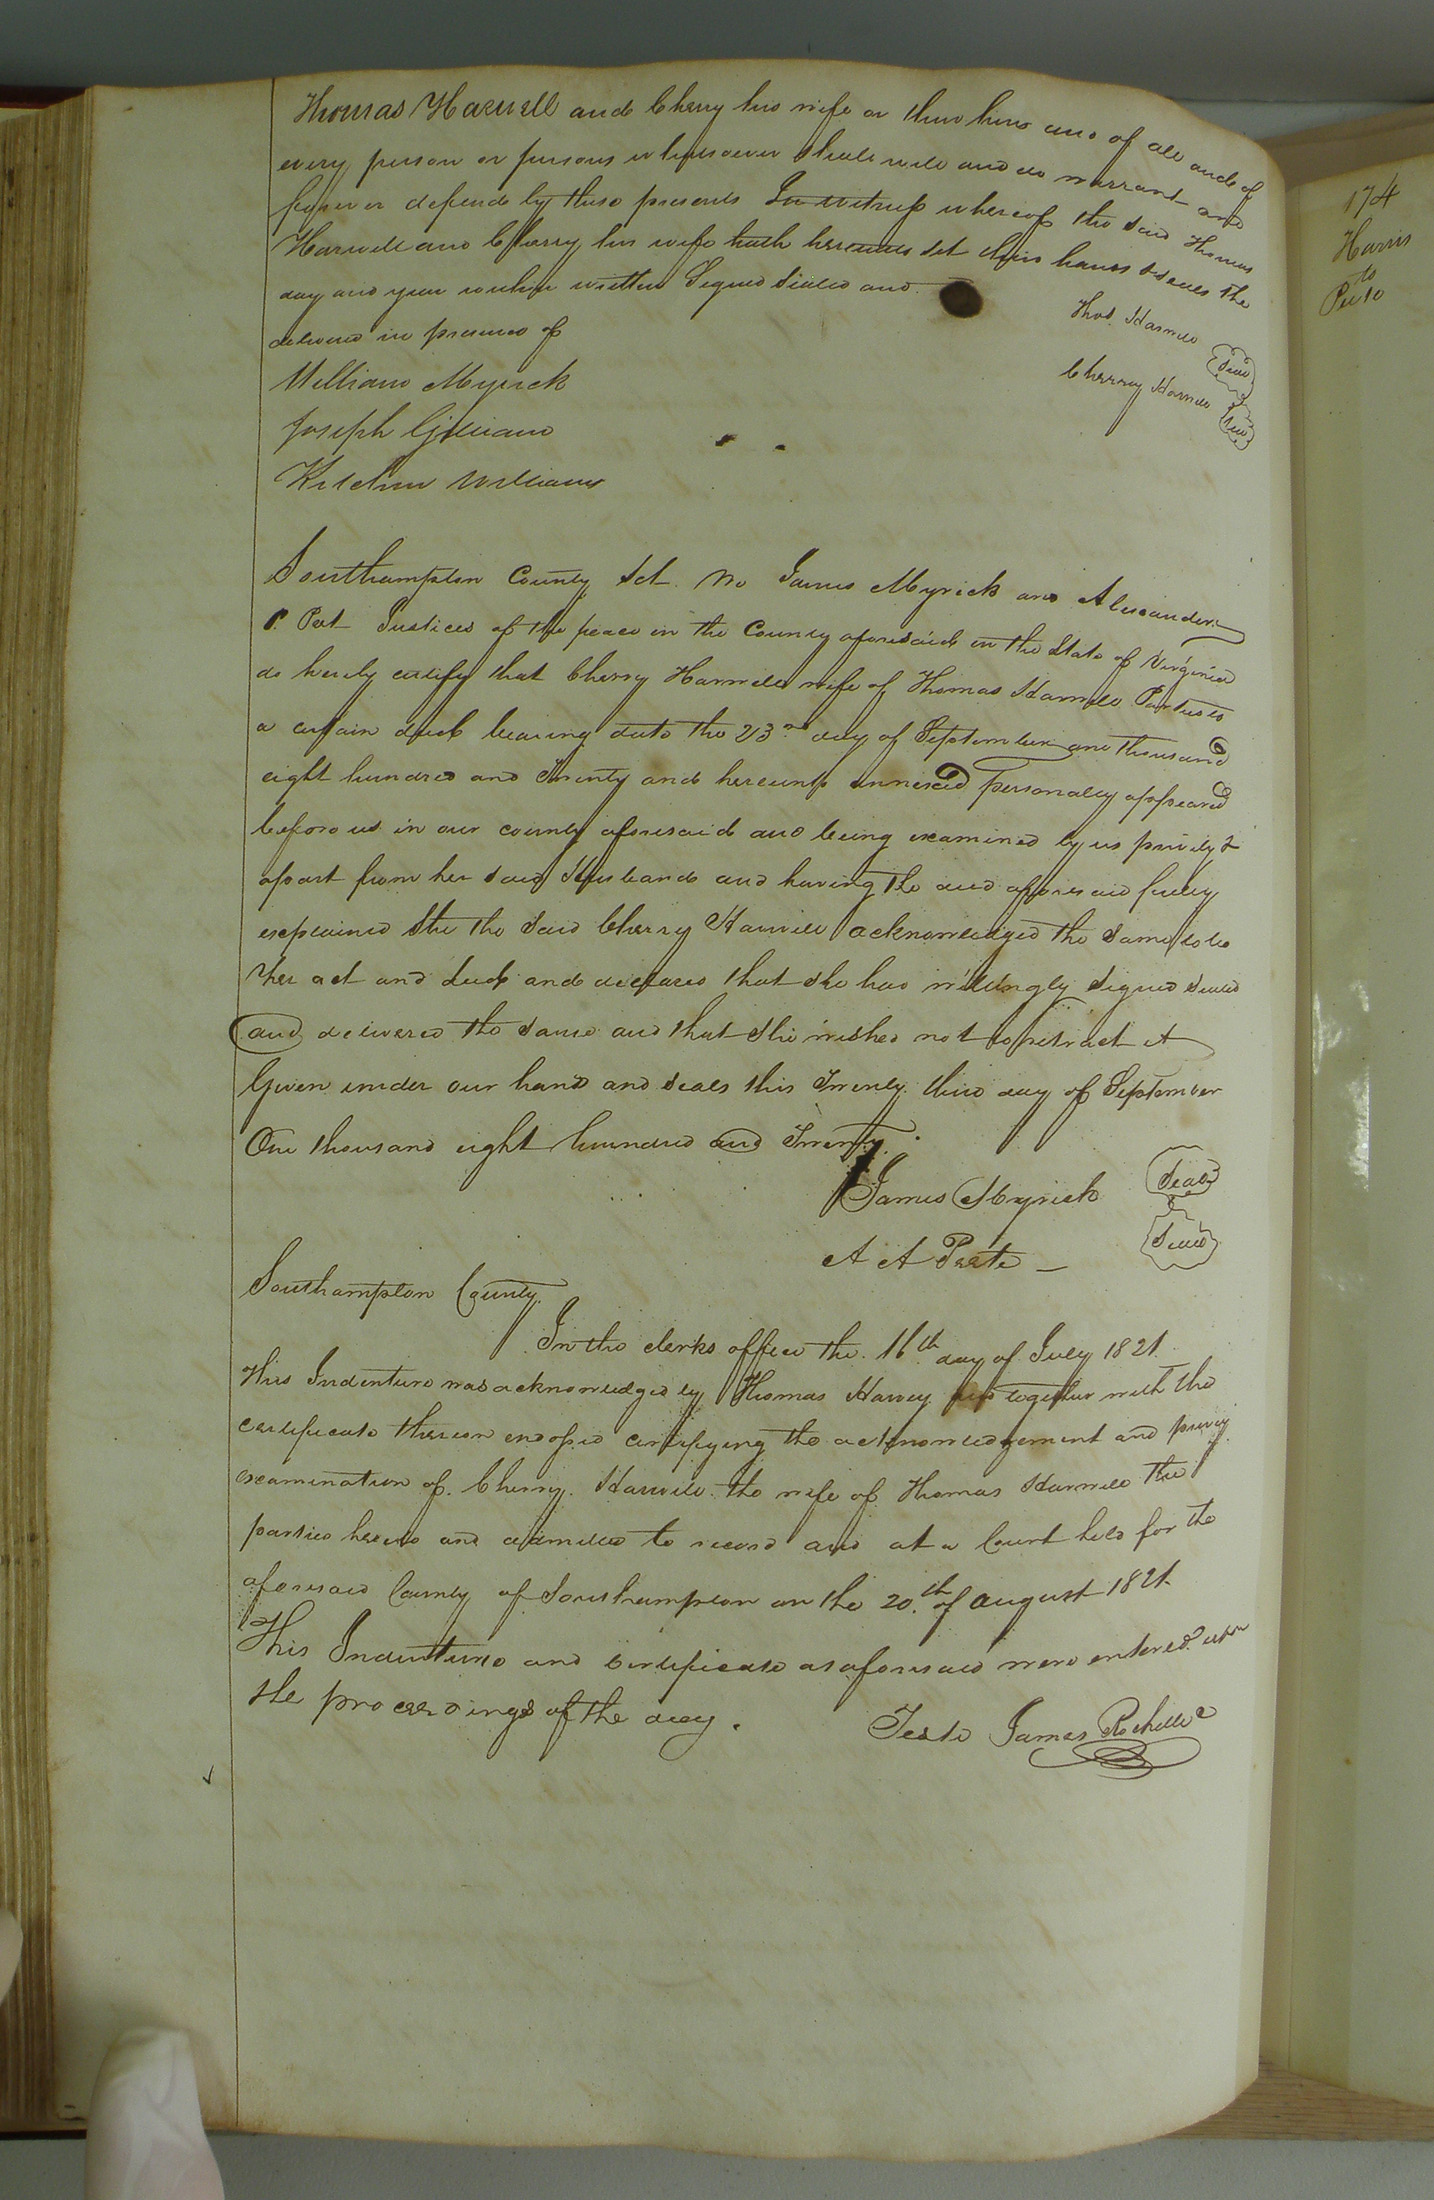 Thomas Harwell and Cherry his wife or their heirs and of all and of
every person or persons whatsoever shall will and do warrant and
forever defend by these presents In witness whereof the said Thomas
Harwell and Cherry his wife hath hereunto set their hands & seals the
day and year within written Signed Sealed and
delivered in presence of
Thos Harwell Seal
William Myrick
Cherry Harwell Seal
Joseph Gilliam
Williams
Southampton County Sct. We James Myrick and Alexander
Peet Justices of the peace in the County aforesaid in the State of Virginia
do hereby certify that Cherry Harwell wife of Thomas Harwell Parties to
a certain deed bearing date the 23rd day of September one thousand
eight hundred and Twenty and hereunto annexed personally appeared
before us in our county aforesaid and being examined by us privily &
apart from her said Husband and having the deed aforesaid fully
explained She the said Cherry Harwell acknowledged the same to be
her act and deed and declared that she had willingly signed sealed
and delivered the same and that she wished not to retract it
Given under our hand and seals this Twenty third day of September
One thousand eight hundred and Twenty.
James Myrick Seal
A A Peete — Seal
Southampton County.
In the clerks office the 16th day of July 1821.
This Indenture was acknowledged by Thomas Harvey and together with the
certificate thereon endorsed certifying the acknowledgement and privy
examination of Cherry Harwell the wife of Thomas Harwell the
parties hereto and admitted to record and at a Court held for the
aforesaid County of Southampton on the 20.th of August 1821
This Indenture and certificate as aforesaid were entered upon
the proceedings of the day.
Teste James Rochelle
174
Harris
to